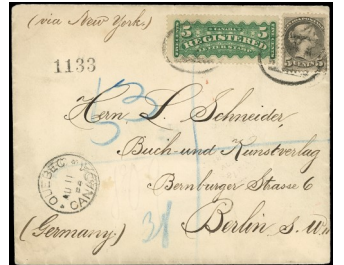 (via New York.)
5 REGISTERED 5
5 CENTS 5
1133
Herrn L. Schneider,
Buch- und Kunstverlag
Bernburger Strasse 6
QUEBEC
CANADA
(Germany.) 38 Berlin S.W.